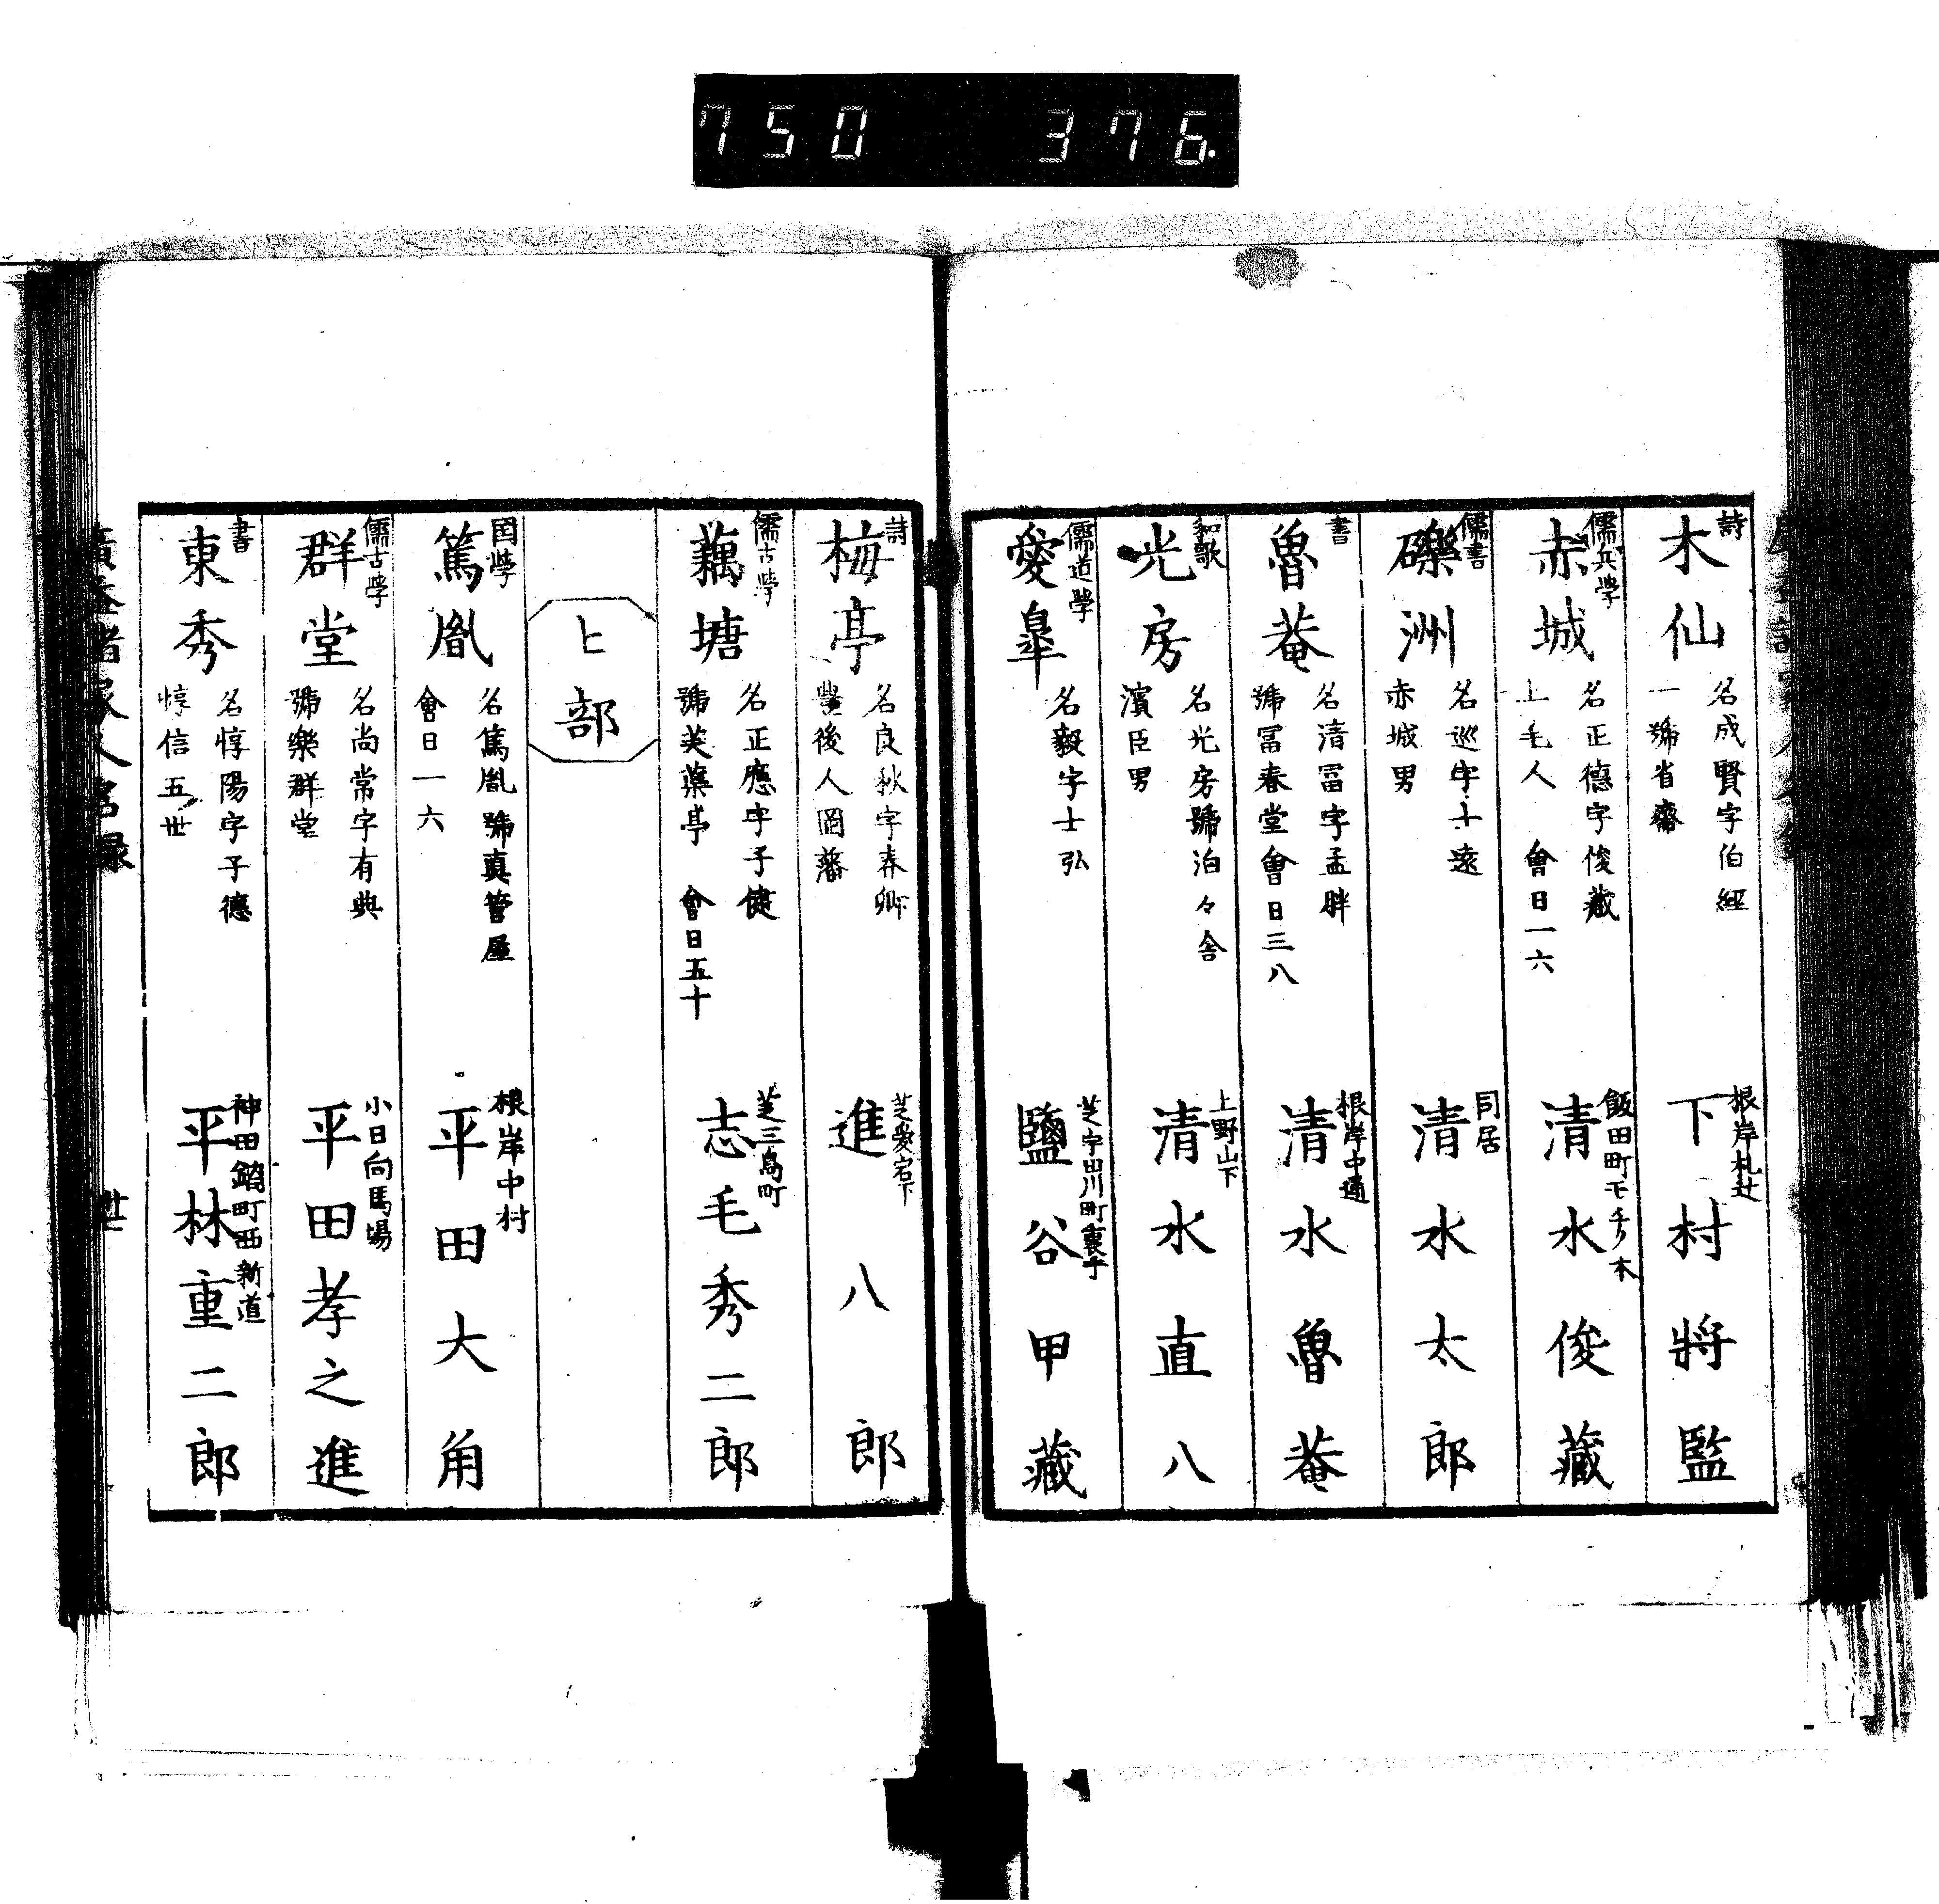 750 376.
詩
木仙
名成賢字伯經
一號省齋
根岸札辻
下村將監
儒兵学
赤城
名正德字俊藏
上毛人 會日一六
飯田町モチノ木
清水俊藏
儒書
礫洲
名巡字士遠
赤城男
同居
清水太郎
書
魯菴
名清冨字孟胖
號冨春堂會日三八
根岸中通
清水魯菴
和歌
光房
名光房號泊々舎
濱臣男
上野山下
清水直八
儒道學
愛皐
名毅字士弘
芝宇田川町裏手
鹽谷甲藏
詩
梅亭
名良秋字春卿
豐後人岡藩
芝愛宕下
進八郎
儒古学
藕塘
名正應字子健
號芙蕖亭 會日五十
芝三島町
志毛秀二郎
ヒ部
国学
篤胤
名篤胤號真菅屋
會日一六
根岸中村
平田大角
儒古学
群堂
名尚常字有典
號樂群堂
小日向馬場
平田孝之進
書
東秀
名惇陽字子德
惇信五世
神田鍋町西新道
平林重二郎
廣益諸家人名録
廿七